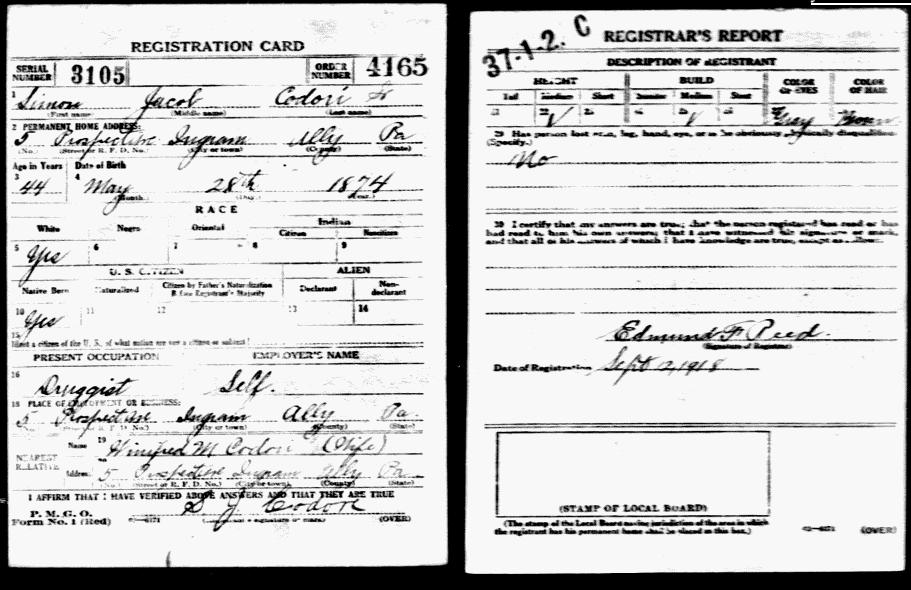 REGISTRATION CARD
SERIAL NUMBER 3105 ORDER NUMBER 4165
1 Simon Jacob Codori
(First name) (Middle name) (Last name)
2 PERMANENT HOME ADDRESS:
5 Prospect Ave Ingram Ally Pa
(No.) (Street or R. F. D. No.) (City or town) (County) (State)
Age in Years Date of Birth
3 4
44 May 28th 1874
(Month.) (Day.) (Year.)
RACE
White Negro Oriental Indian
Citizen Noncitizen
5 6 7 8 9
Yes
U. S. CITIZEN ALIEN
Native Born Naturalized Citizen by Father's Naturalization Before Registrant's Majority Declarant Non-declarant
10 11 12 13 14
Yes
15
If not a citizen of the U. S., of what nation are you a citizen or subject?
PRESENT OCCUPATION EMPLOYER'S NAME
16
Druggist Self.
18 PLACE OF EMPLOYMENT OR BUSINESS:
5 Prospect Ave Ingram Ally Pa.
(No.) (Street or R. F. D. No.) (City or town) (County) (State)
NEAREST RELATIVE
Name 19 Winifred M Codori (Wife)
Address 20 5 Prospect Ave Ingram Ally Pa
(No.) (Street or R. F. D. No.) (City or town) (County) (State)
I AFFIRM THAT I HAVE VERIFIED ABOVE ANSWERS AND THAT THEY ARE TRUE
P. M. G. O.
Form No. 1 (Red) S J Codori
(Registrant's signature or mark) (OVER)
37-1-2. C
REGISTRAR'S REPORT
DESCRIPTION OF REGISTRANT
HEIGHT BUILD COLOR OF EYES COLOR OF HAIR
Tall Medium Short Slender Medium Stout
21 22 23 24 25 26 27 28
Gray Brown
29 Has person lost arm, leg, hand, eye, or is he obviously physically disqualified?
(Specify.)
No
30 I certify that my answers are true; that the person registered has read or has
had read to him his own answers; that I have witnessed his signature or mark,
and that all of his answers of which I have knowledge are true, except as follows:
Edmund F Reed.
(Signature of Registrar)
Date of Registration Sept 12, 1918
(STAMP OF LOCAL BOARD)
(The stamp of the Local Board having jurisdiction of the area in which
the registrant has his permanent home shall be placed in this box.)
(OVER)